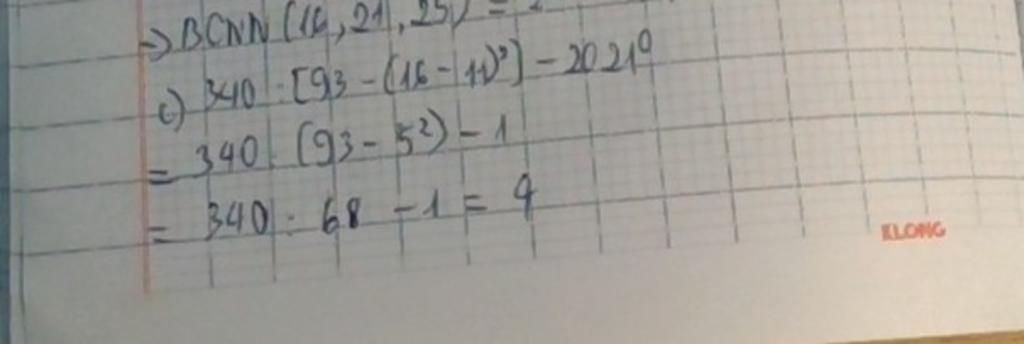 => BCNN (16, 21, 25) =
c) 340 : [93 - (16 - 11)²] - 2021⁰
= 340 : (93 - 5²) - 1
= 340 : 68 - 1 = 4
KLONG